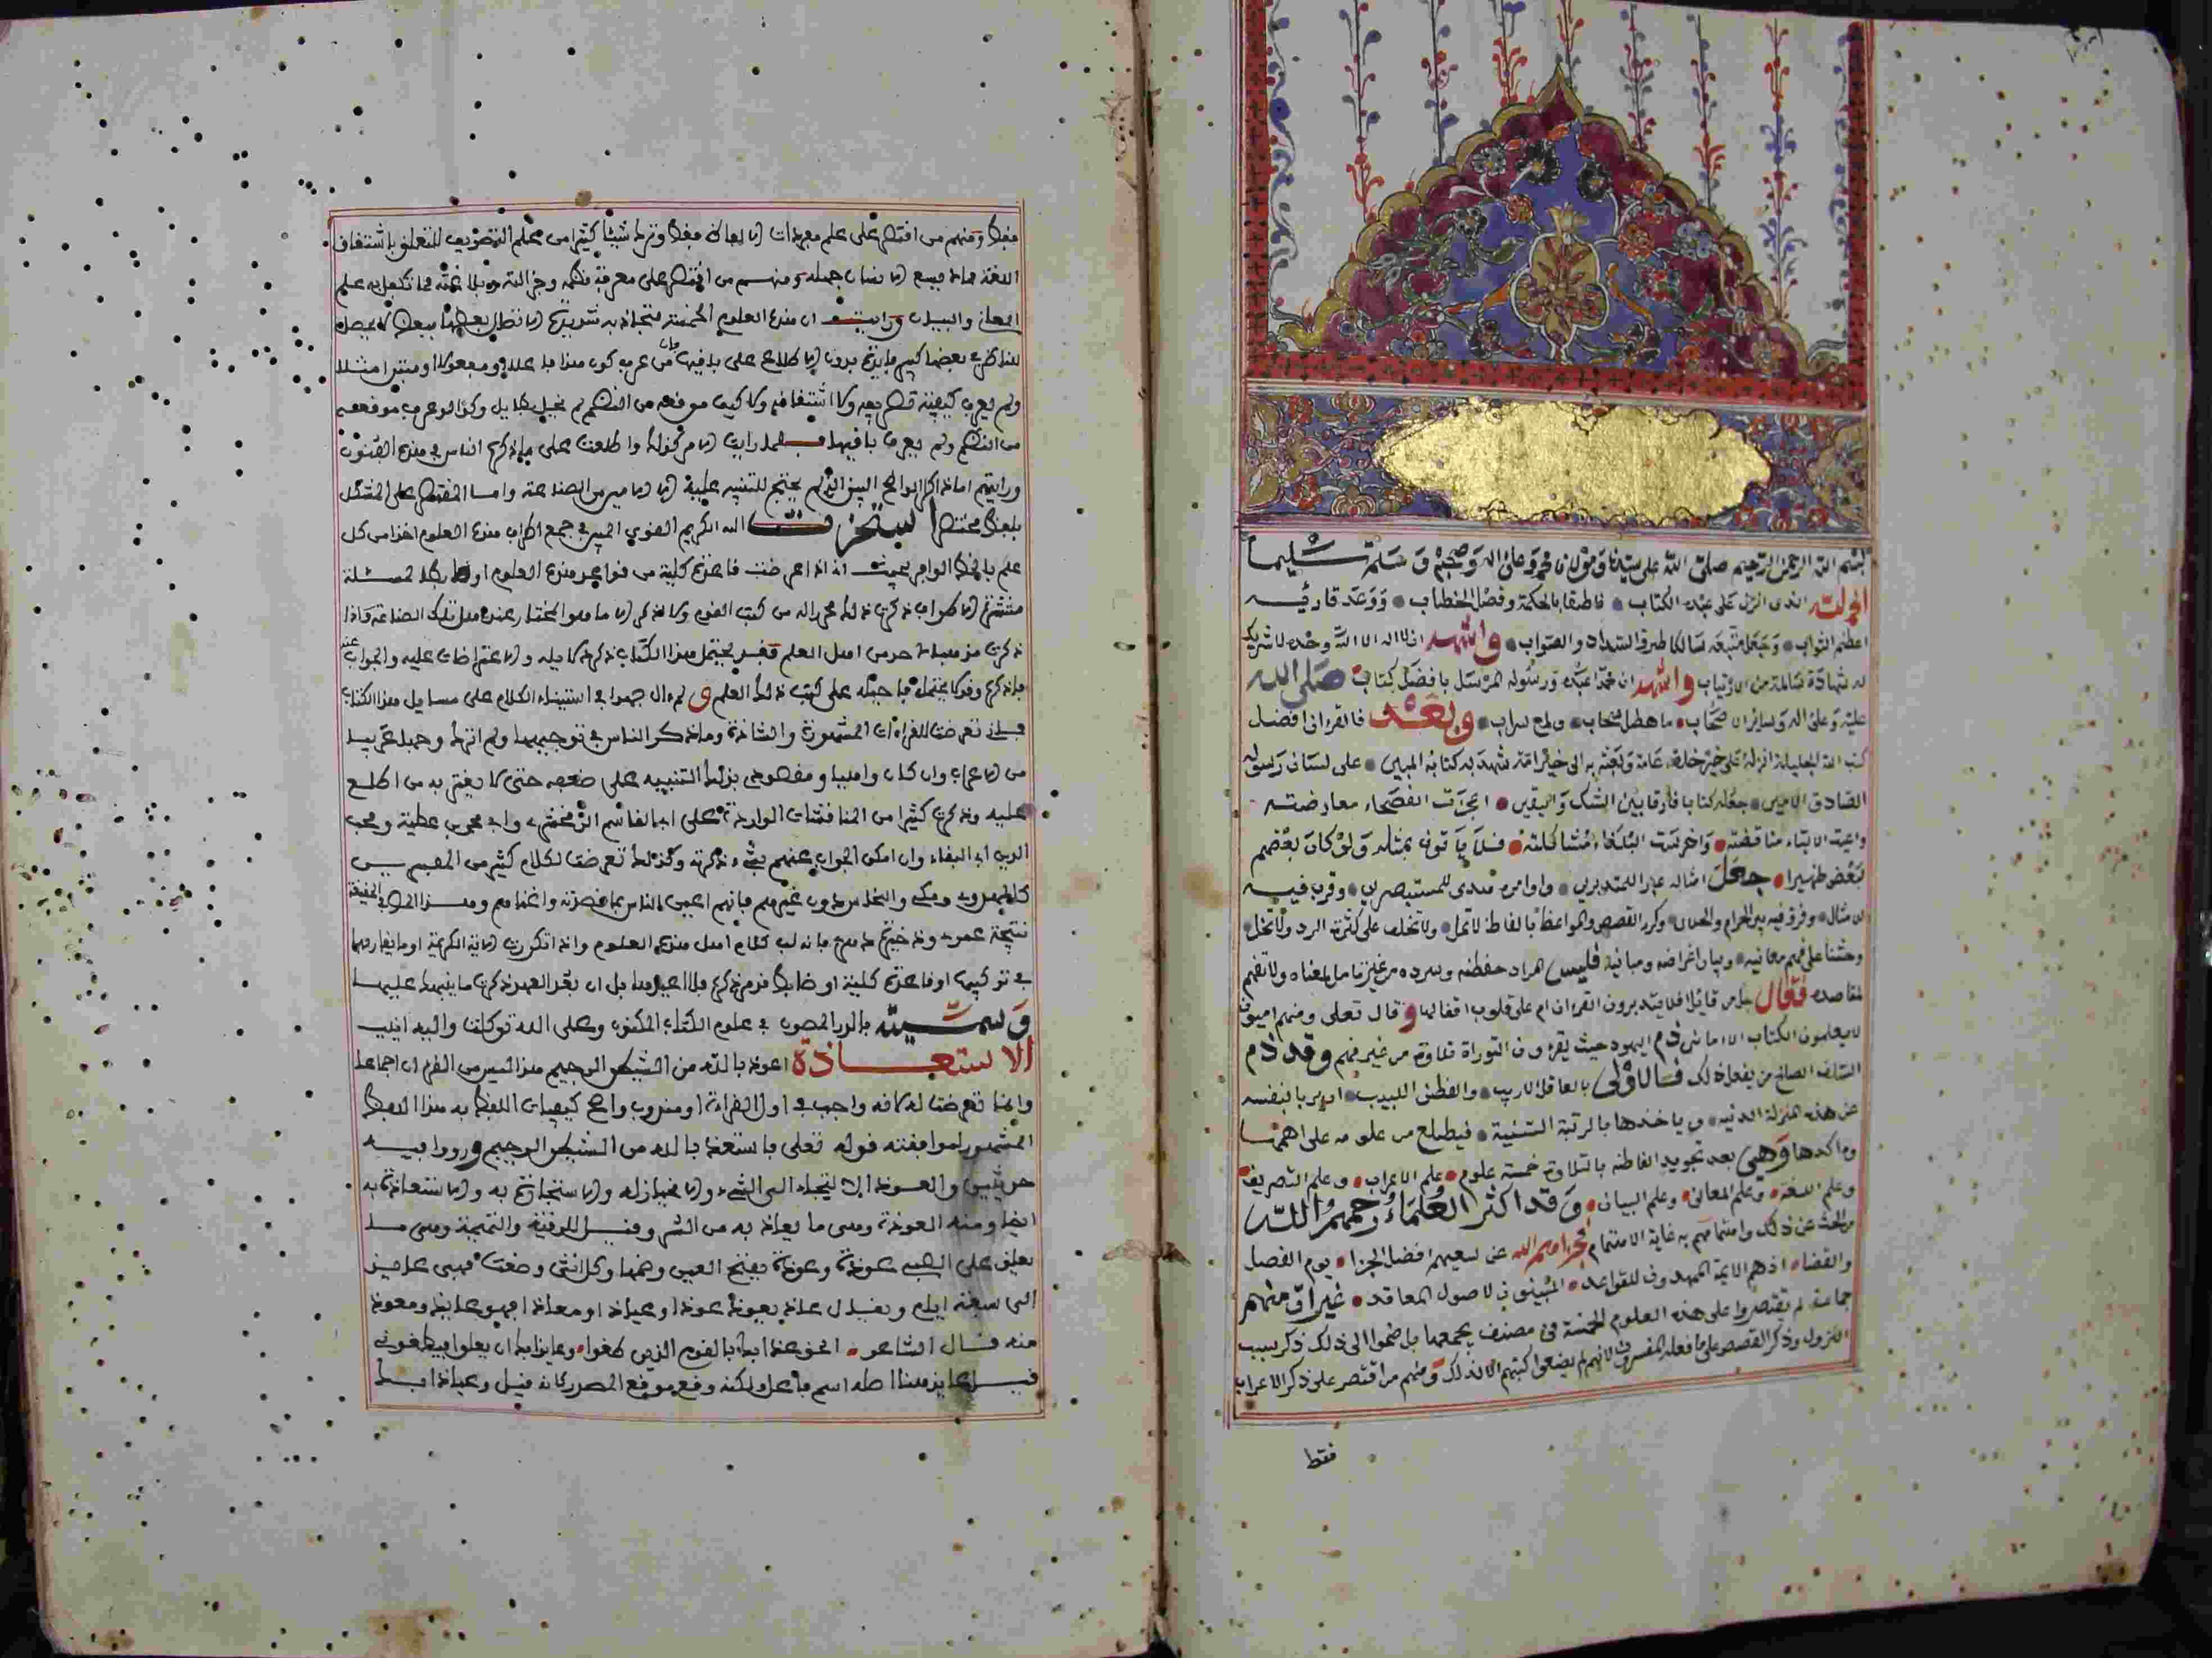 بسم الله الرحمن الرحيم صلى الله على سيدنا ومولانا محمد وعلى اله وصحبه وسلم تسليما
الحمد لله الذى انزل على عبده الكتاب فاطقا بالحكمة وفصل الخطاب ووعد قارئيه
اعظم الثواب وجعل متبعه سالكا طرق السداد والصواب واشهد ان لا اله الا الله وحده لا شريك
له شهادة سالمة من الارتياب واشهد ان محمدا عبده ورسوله المرسل بافضل كتاب صلى الله
عليه وعلى اله وسائر الاصحاب ما هطل سحاب ولمع سراب وبعد فالقرءان افضل
كتب الله الجليلة انزله على خير خلقه عامة وبعثه به الى خير امة شهد به كتابه المبين على لسان رسوله
الصادق الامين جعله كتابا فارقا بين الشك واليقين اعجزت الفصحاء معارضته
واعيت الالباء مناقضته واخرست البلغاء مشاكلته فلا ياتون بمثله ولو كان بعضهم
لبعض ظهيرا جعل امثاله عبرا للمتدبرين واوامره هدى للمستبصرين وقرب فيه
الامثال وفرق فيه بين الحرام والحلال وكرر القصص والمواعظ بالفاظ لا تمل ولا تخلف على كثرة الرد ولا تخل
وحثنا على فهم معانيه وبيان اغراضه ومبانيه فليس المراد حفظه وسرده من غير تامل لمعناه ولا تفهم
لمقاصده فقال جل من قائل افلا يتدبرون القرءان ام على قلوب اقفالها وقال تعلى ومنهم اميون
لا يعلمون الكتاب الا امانى ذم اليهود حيث يقرءون التوراة تلاوة من غير فهم وقد ذم
السلف الصالح من يفعل ذلك فالاولى بالعاقل الاريب والفطن اللبيب ان يربا بنفسه
عن هذه المنزلة الدنية وياخذها بالرتبة السنية فيطلع من علومه على اهمها
واكدها وهي بعد تجويد الفاظه بالتلاوة خمسة علوم علم الاعراب وعلم التصريف
وعلم اللغة وعلم المعانى وعلم البيان وقد اكثر العلماء رحمهم الله
من البحث عن ذلك واهتمامهم به غاية الاهتمام فجزاهم الله عن سعيهم افضل الجزا يوم الفصل
والقضاء اذ هم الايمة الممهدون للقواعد المبينون لاصول المعاقد غير ان منهم
جماعة لم يقتصروا على هذه العلوم الخمسة في مصنف يجمعها بل ضموا الى ذلك ذكر سبب
النزول وذكر القصص على ما فعله المفسرون لانهم لم يضعوا كتبهم الا لذلك ومنهم من اقتصر على ذكر الاعراب
فقط
فقط ومنهم من اقتصر على علم مفردات الالفاظ فقط وترك شيئا كثيرا من علم التصريف المتعلق باشتقاق
اللغة ومنهم من اقتصر على معرفة نظمه وجزالته وبلاغته مما تكفل به علم
المعاني والبيان ورايت ان هذه العلوم الخمسة متجاذبة شديدة الاتصال بعضها ببعض لا يحصل
للناظر في بعضها كبير فايدة بدون الاطلاع على باقيها فان من عرف كون هذا فاعلا او مفعولا او مبتدا مثلا
ولم يعرف كيفية تصريفه ولا اشتقاقه ولا كيف موقعه من النظم لم يحل بطايل وكذا لو عرف موقعه
من النظم ولم يعرف باقيها فلما رايت الامر كذلك واطلعت على ما ذكره الناس في هذه الفنون
ورايتهم اما ذاكرا الواضح البين الذى لم يحتج للتنبيه عليه الا الاجنبى من الصناعة واما المقتصر على المشكل
بلفظ مختصر استخرت الله الكريم القوي المتين في جمع اطراف هذه العلوم اخذا من كل
علم بالحظ الوافر بحيث انى اذا عرضت قاعدة كلية من قواعد هذه العلوم او ضابط لمسئلة
منتشرة الاطراف ذكرت ذلك محررا له من كتب القوم ولا اذكر الا ما هو المختار عند اهل تلك الصناعة واذا
ذكرت مذهبا لاحد من اهل العلم فقد يحتمل هذا الكتاب ذكر دلايله والاعتراضات عليه والجواب عنه
فاذكره وقد لا يحتمل فاحيله على كتب ذلك العلم ولم ءال جهدا في استيفاء الكلام على مسايل هذا الكتاب
فانى تعرضت للقراءات المشهورة والشاذة وما ذكر الناس في توجيهها ولم اترك وجها غريبا
من الاعراب وان كان واهيا ومقصودي بذلك التنبيه على ضعفه حتى لا يغتر به من اطلع
عليه وذكرت كثيرا من المناقشات الواردة على ابى القاسم الزمخشرى وابى محمد بن عطية ومحب
الدين ابى البقاء وان امكن الجواب عنهم بشيء ذكرته وكذلك تعرضت لكلام كثير من المفسرين
كالمهدوى ومكى والنحاس دون غيرهم فانهم اعنى الناس بما قصدته واغناهم وهذا في الحقيقة
نتيجة عمرى وذخيرة دهرى فانه لب كلام اهل هذه العلوم واذا تكررت الاية الكريمة او ما يقاربها
في تركيبها او قاعدة كلية او ضابط قد مر ذكره فلا اعيدها بل ان بعد العهد ذكرت ما ينبهك عليها
وسميته بالدر المصون في علوم الكتاب المكنون وعلى الله توكلت واليه انيب
الاستعاذة اعوذ بالله من الشيطان الرجيم هذا ليس من القرءان اجماعا
وانما تعرضت له لانه واجب في اول القراءة او مندوب واصح كيفيات اللفظ به هذا اللفظ
المشهور لموافقته قوله تعلى فاستعذ بالله من الشيطان الرجيم وروا فيه
حديثين والعوذ الالتجاء الى الشيء والانحياز له والاستجارة به والاستعاذة به
ايضا ومنه العوذة وهى ما يعاذ به من الشر وقيل للرقية والتميمة وهى ما
يعلق على الصبى عوذة وعوذة بفتح العين وضمها وكل انثى وضعت فهى عايذ
الى سبعة ايام ويقال عاذ يعوذ عوذا وعياذا ومعاذا فهو عايذ ومعوذ
منه قال الشاعر الحق عذابك بالقوم الذين طغوا وعايذا بك ان يعلوا فيطغونى
قيل عايذ هنا اصله اسم فاعل ولكنه وقع موقع المصدر كانه قيل وعياذا بك